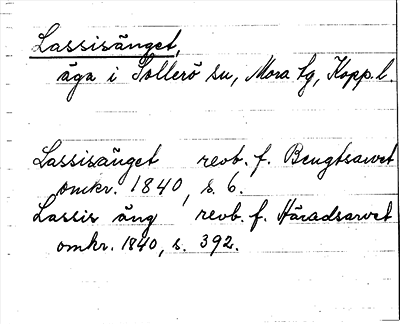 Lassisänget,
äga i Sollerö sn, Mora tg, Kopp.l.
Lassisänget revb. f. Bengtsarvet
omkr. 1840, s. 6.
Lassis äng revb. f. Häradsarvet
omkr. 1840, s. 392.